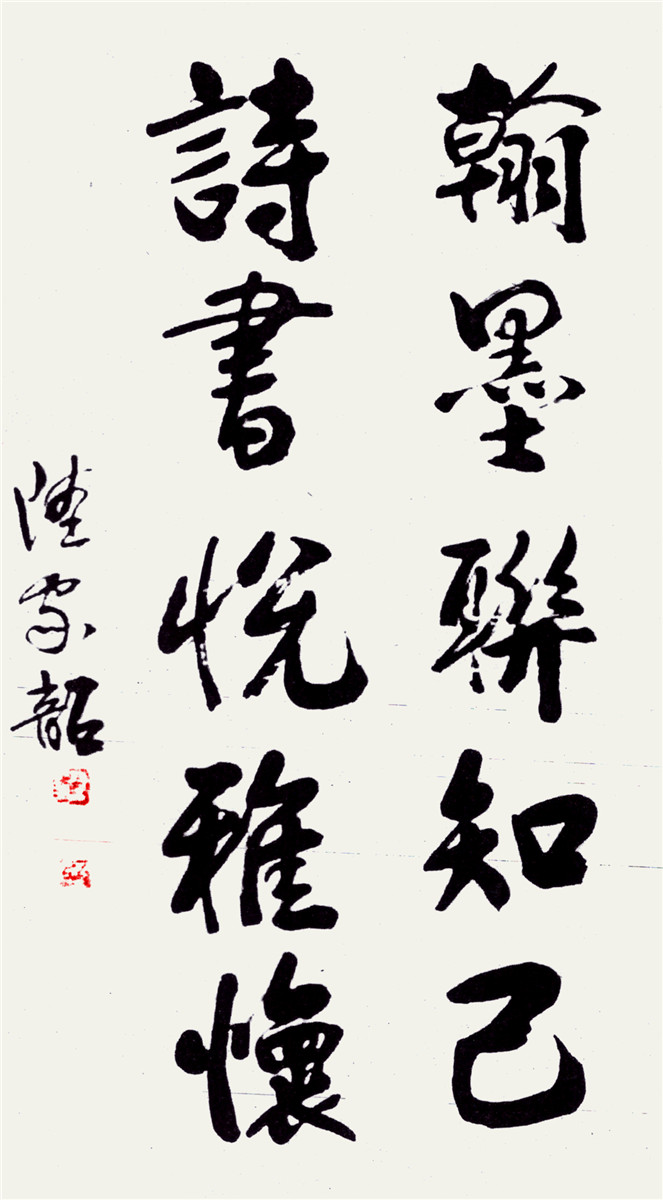 翰墨聯知己
詩書悅雅懷
陸家韶